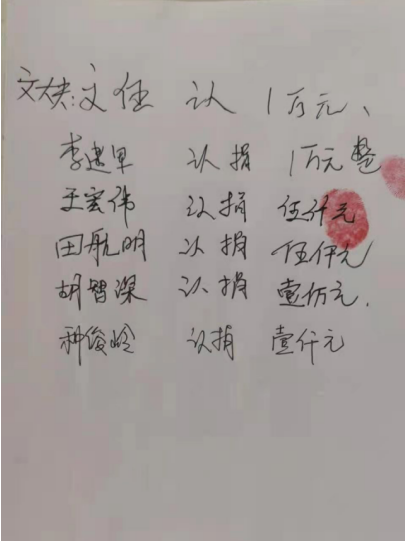 文大夫:文任 认 1万元、
李建軍 认捐 1万元整
王宏伟 认捐 伍仟元
田航明 认捐 伍仟元
胡智深 认捐 壹万元.
种俊岭 认捐 壹仟元